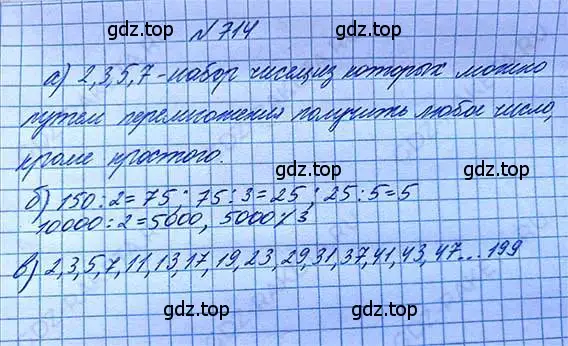 gdz.top
№ 714
gdz.top
а) 2,3,5,7 - набор чисел, из которых можно
путем перемножения получить любое число,
кроме простого.
gdz.top
gdz.top
б) 150:2=75; 75:3=25; 25:5=5
10000:2=5000, 5000⁒3
gdz.top
в) 2,3,5,7,11,13,17,19,23,29,31,37,41,43,47...199
gdz.top
gdz.top